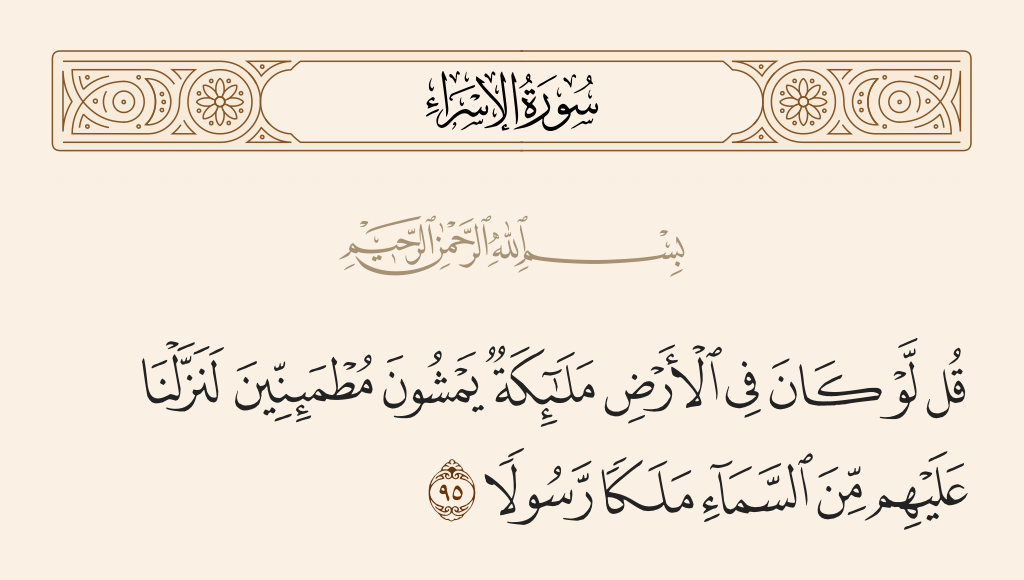 سُورَةُ الإِسْرَاءِ
بِسْمِ ٱللَّهِ ٱلرَّحْمَٰنِ ٱلرَّحِيمِ
قُل لَّوْ كَانَ فِى ٱلْأَرْضِ مَلَـٰٓئِكَةٌ يَمْشُونَ مُطْمَئِنِّينَ لَنَزَّلْنَا
عَلَيْهِم مِّنَ ٱلسَّمَآءِ مَلَكًا رَّسُولًا ٩٥